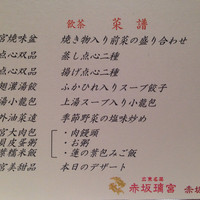 飲茶 菜譜
宮焼味盆 焼き物入り前菜の盛り合わせ
点心双品 蒸し点心二種
点心双品 揚げ点心二種
翅灌湯餃 ふかひれ入りスープ餃子
湯小籠包 上湯スープ入り小籠包
外油菜遠 季節野菜の塩味炒め
宮大肉包 ・肉饅頭
貝皮蛋粥 ・お粥
葉糯米飯 ・蓮の葉包みご飯
宮美甜品 本日のデザート
広東名菜
赤坂璃宮 赤坂